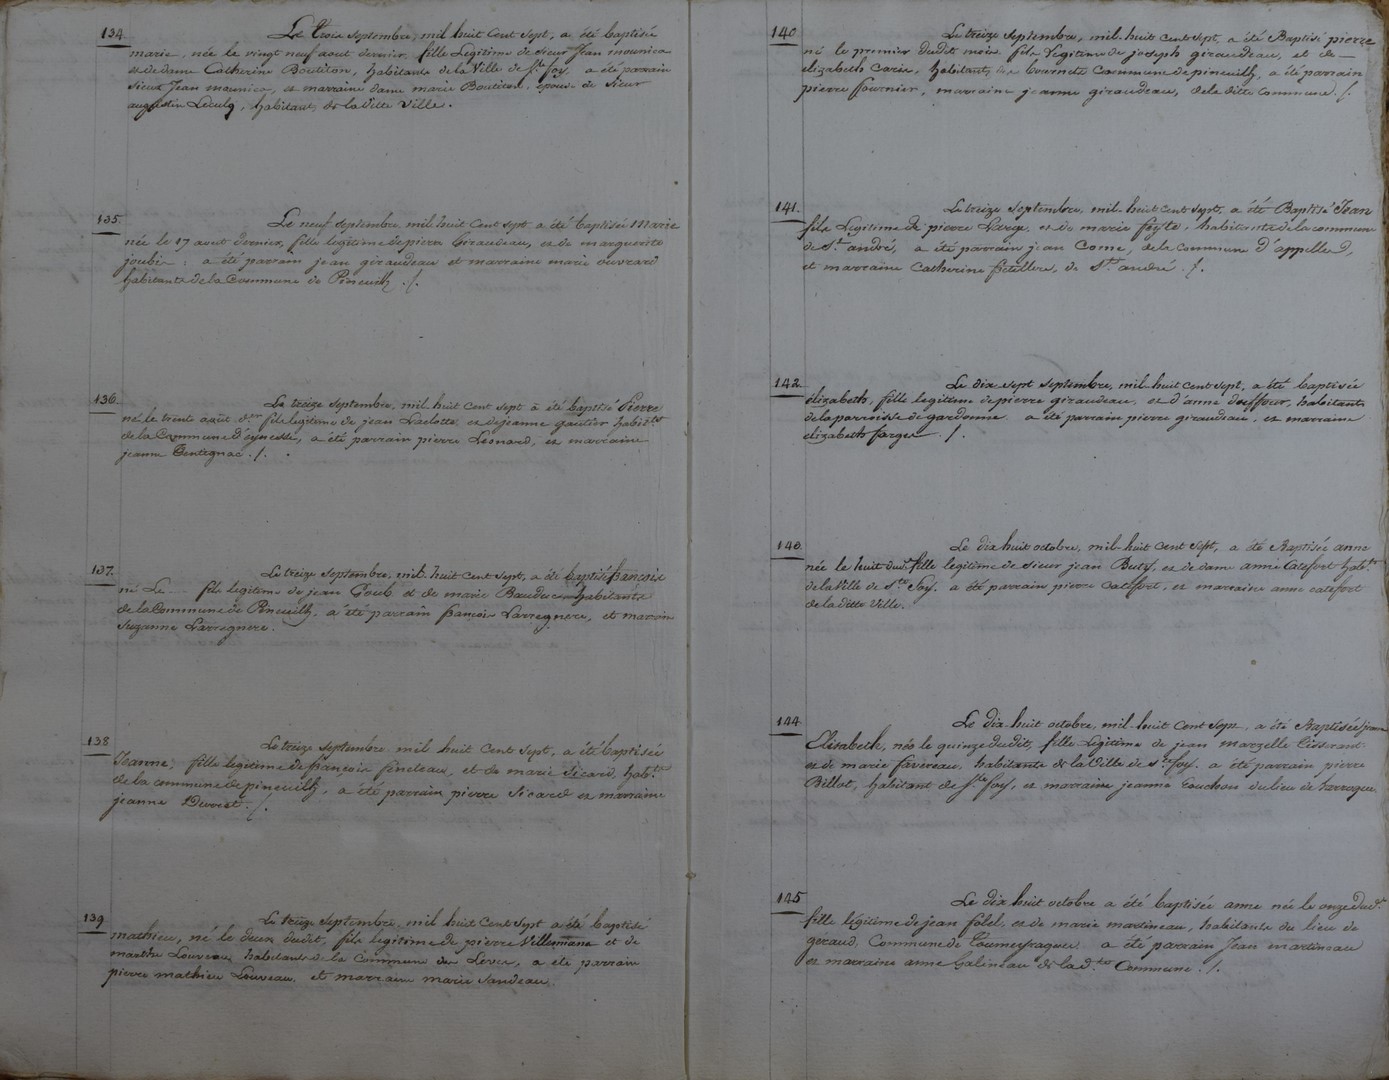 134.
Le trois septembre, mil huit cent sept, a été baptisée
marie, née le vingt neuf aout dernier, fille Legitime de sieur Jean mounica
et de dame Catherine Boutiton, habitants de la Ville de Ste foy. a été parrain
sieur Jean mounica, et marraine dame marie Boutiton, epouse de Sieur
augustin, habitants de la ditte Ville.
135.
Le neuf septembre mil huit Cent sept a été baptisée Marie
née le 17 aout dernier, fille legitime de pierre Giraudeau, et de marguerite
joubin : a été parrain jean giraudeau et marraine marie ouvrard
habitants de la Commune de Pineuilh ./.
136.
Le treize septembre, mil huit cent sept a été baptisé Pierre
né le trente août der fils legitime de jean Laclotte et de jeanne gautier habitts
de la Commune d'eynesse, a été parrain pierre Leonard, et marraine
jeanne ./.
137.
Le treize septembre, mil huit cent sept, a été baptisé françois
né Le ... fils legitime de jean Goub et de marie habitants
de la Commune de Pineuilh. a été parrain françois Larregnere, et marraine
Suzanne Larregnere.
138
Le treize septembre mil huit Cent Sept, a été baptisée
Jeanne, fille legitime de françois feneteau, et de marie Sicard, habts
de la commune de pineuilh, a été parrain pierre Sicard et marraine
jeanne ./.
139
Le treize septembre mil huit Cent Sept a été baptisé
mathieu, né le deux dudit, fils legitime de pierre Villemiane et de
marthe Louveau habitants de la Commune de, a été parrain
pierre mathieu Louveau, et marraine marie Sandeau.
140
Le treize septembre, mil huit Cent Sept, a été Baptisé pierre
né le premier dudit mois, fils Legitime de joseph giraudeau, et de —
elizabeth Carie, habitants des bournets Commune de pineuilh, a été parrain
pierre fournier, marraine jeanne giraudeau, de la ditte Commune ./.
141.
Le treize Septembre, mil huit cent sept, a été Baptisé Jean
fils Legitime de pierre Large, et de marie feyte, habitants de la commune
de St andré, a été parrain jean Come, de la commune d'appelles,
et marraine Catherine, de St andré ./.
142.
Le dix sept septembre, mil huit cent sept, a été baptisée
élizabeth, fille legitime de pierre giraudeau, et d'anne duffour, habitants
de la parroisse de gardonne. a été parrain pierre giraudeau, et marraine
elizabeth farges ./.
140.
Le dix huit octobre, mil huit cent sept, a été Baptisée anne
née le huit dudt fille legitime de sieur jean Buty, et de dame anne Catefort habts
de la Ville de Ste foy. a été parrain pierre Catefort, et marraine anne catefort
de la ditte Ville.
144
Le dix huit octobre, mil huit Cent Sept, a été Baptisée jeanne
Elisabeth, née le quinze dudit, fille Legitime de jean marzelle tisserant
et de marie favereau, habitants de la Ville de Ste foy. a été parrain pierre
Billot, habitant de Ste foy, et marraine jeanne du lieu de
145
Le dix huit octobre a été baptisée anne née le onze dudt
fille légitime de jean folel, et de marie martineau, habitants du lieu de
géraud, Commune de. a été parrain Jean martineau
et marraine anne Galineau de la dte Commune ./.